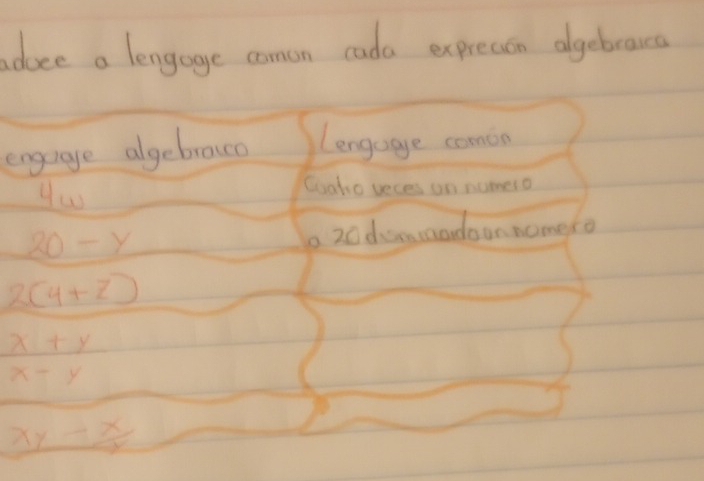 aduce a lenguage comun cada expreción algebraica
enguage algebraico Lenguage común
4w Cuatro veces un numero
20 - y a 20 disminuado un numero
2(4+z)
x + y
x - y
xy - x/y